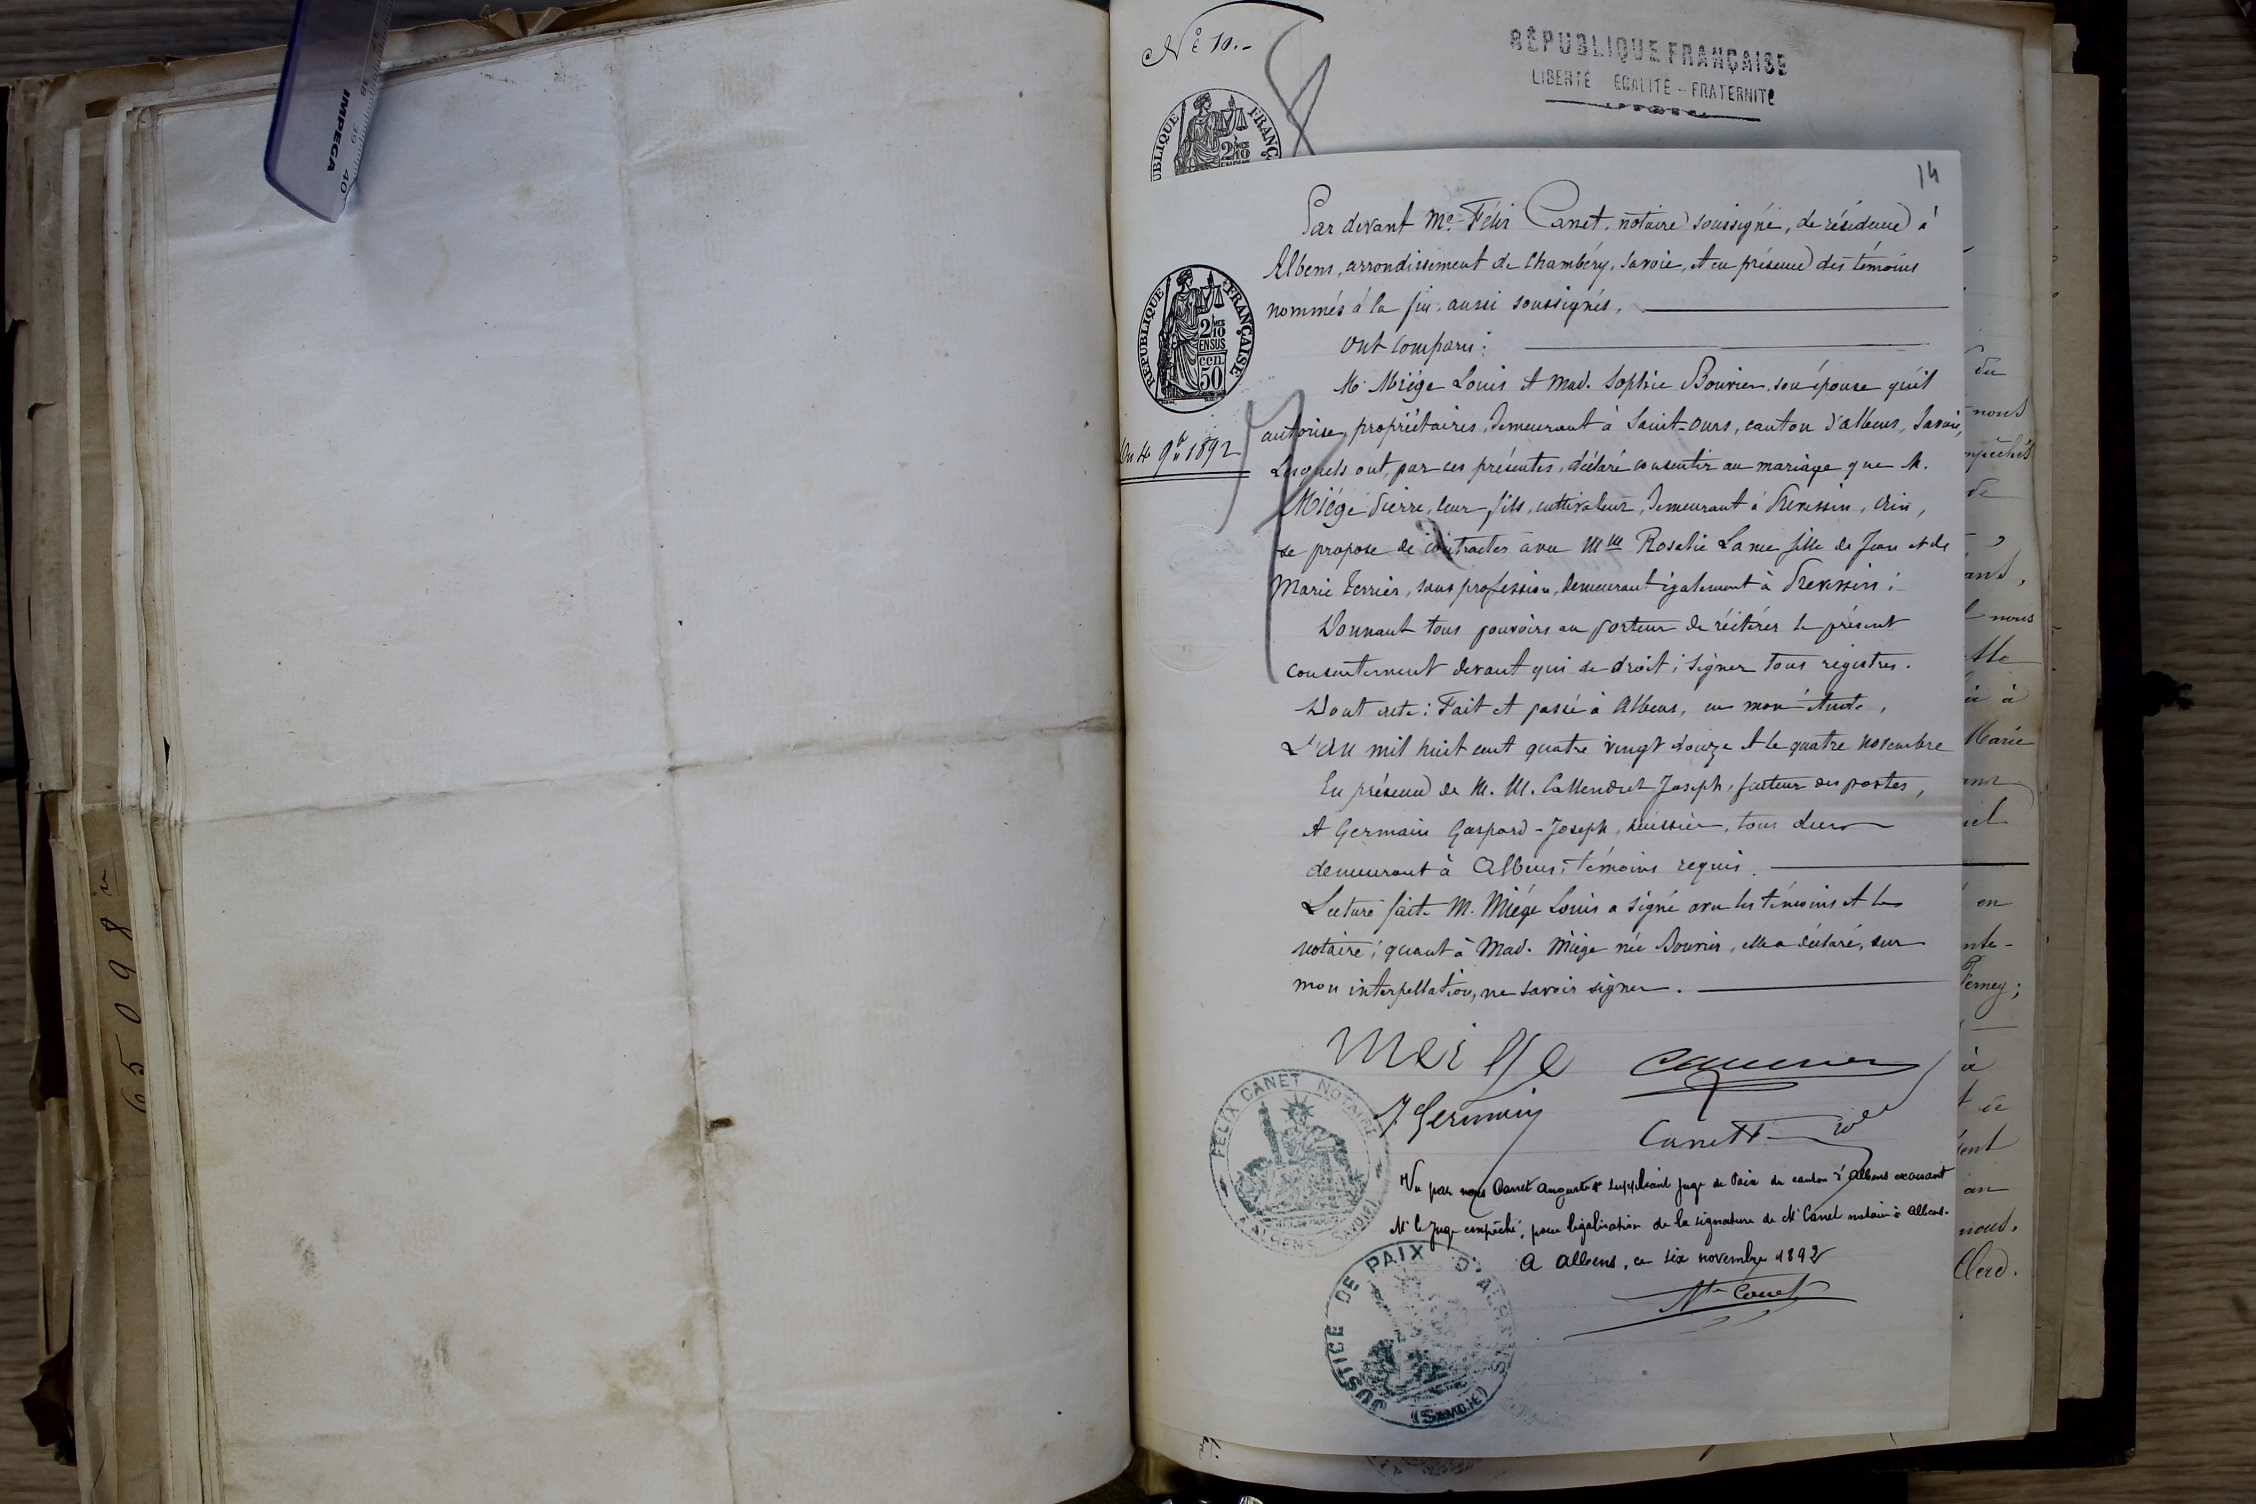 IMPEGA
38 39 40
65098
N° 10.-
RÉPUBLIQUE FRANÇAISE
LIBERTÉ EGALITÉ - FRATERNITÉ
14
Par devant Me. Félix Canet, notaire soussigné, de résidence à
Albens, arrondissement de Chambéry, Savoie, et en présence des témoins
nommés à la fin, aussi soussignés.
Ont comparu :
M. Miége Louis et Mad. Sophie Bouvier, son épouse qu'il
autorise, propriétaires, demeurant à Saint-Ours, canton d'Albens, Savoie,
Lesquels ont, par ces présentes, déclaré consentir au mariage que M.
Miége Pierre, leur fils, cultivateur, demeurant à Prevessin, Ain,
se propose de contracter avec Mlle Rosalie Lanne fille de Jean et de
Marie Perrier, sans profession, demeurant également à Prevessin ;
Donnant tous pouvoirs au porteur de réitérer le présent
consentement devant qui de droit ; signer tous registres.
Dont acte : Fait et passé à Albens, en mon étude,
L'an mil huit cent quatre vingt douze et le quatre novembre
En présence de M. M. Callendret Joseph, facteur des postes,
et Germain Gaspard-Joseph, huissier, tous deux
demeurant à Albens, témoins requis.
Lecture faite M. Miége Louis a signé avec les témoins et le
notaire ; quant à Mad. Miége née Bouvier, elle a déclaré, sur
mon interpellation, ne savoir signer.
RÉPUBLIQUE FRANÇAISE
2/10 EN SUS
cen. 50
Du 4 9bre 1892
J Germain
Canet
FELIX CANET NOTAIRE
ALBENS (SAVOIE)
Vu par nous Canet Auguste suppléant juge de Paix du canton d'Albens excusant
Mr le Juge empêché, pour légalisation de la signature de Me Canet notaire à Albens.
A Albens, ce six novembre 1892
Canet
JUSTICE DE PAIX D'ALBENS
(SAVOIE)
du
nous
empêchés
de
nous
elle
à
Marie
en
Ferney ;
à
et de
an
nous.
Clerc.